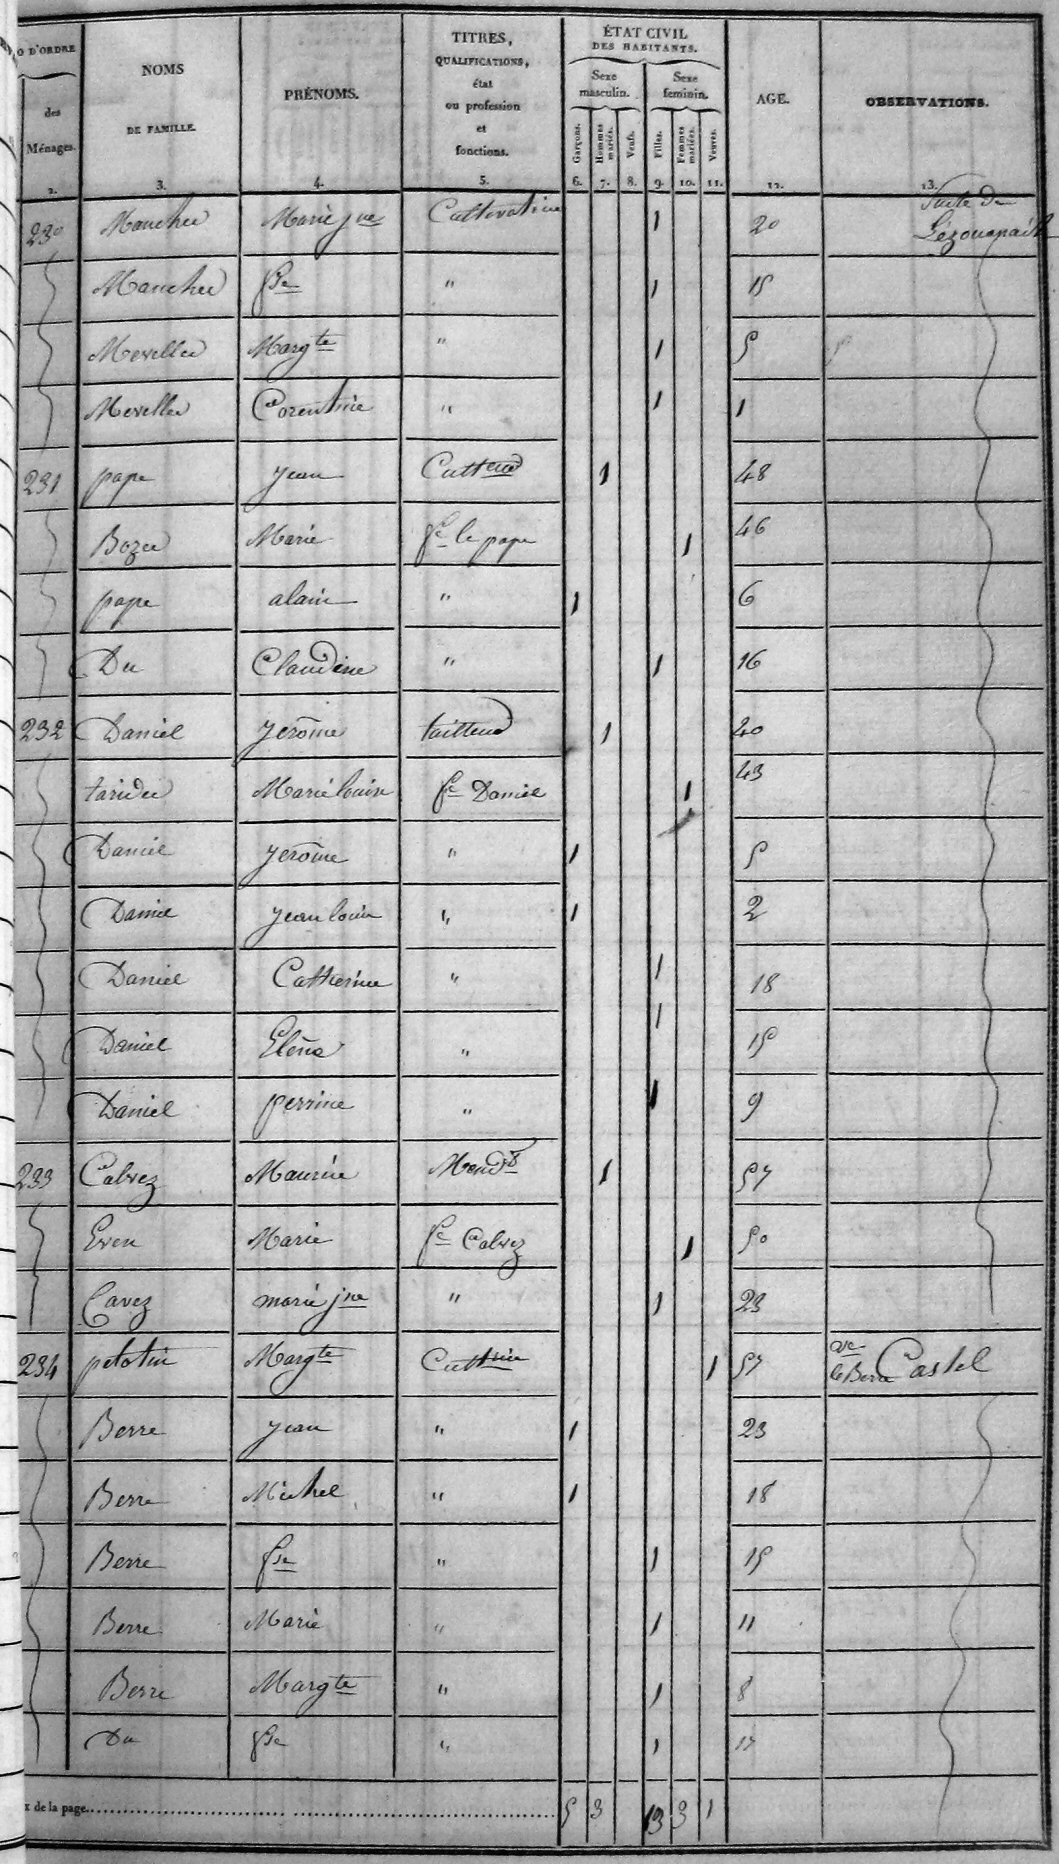 O D'ORDRE des Ménages. 2.
NOMS DE FAMILLE. 3.
PRÉNOMS. 4.
TITRES, QUALIFICATIONS, état ou profession et fonctions. 5.
ÉTAT CIVIL DES HABITANTS.
Sexe masculin. Sexe feminin.
Garçons. 6. Hommes mariés. 7. Veufs. 8. Filles. 9. Femmes mariées. 10. Veuves. 11.
AGE. 12.
OBSERVATIONS. 13.
230 Mauchec Marie jne Cultivatrice 1 20 Suite de
Mauchec fse " 1 15
Mevellec Margte " 1 5
Mevellec Corentine " 1 1
231 pape jean Culteur 1 48
Bozec Marie fe le pape 1 46
pape alain " 1 6
Du Claudine " 1 16
232 Daniel jerôme tailleur 1 40
taridec Marie louise fe Daniel 1 43
Daniel jerôme " 1 5
Daniel jean louis " 1 2
Daniel Catherine " 1 18
Daniel Eléna " 1 15
Daniel perrine " 1 9
233 Calvez Maurice Mendt 1 57
Even Marie fe Calvez 1 50
Cavez marie jne " 1 23
234 petotin Margte Cultrice 1 57 ve le Berre Castel
Berre jean " 1 23
Berre Michel " 1 18
Berre fse " 1 15
Berre Marie " 1 11
Berre Margte " 1 8
Du fse " 1 17
x de la page 5 3 13 3 1